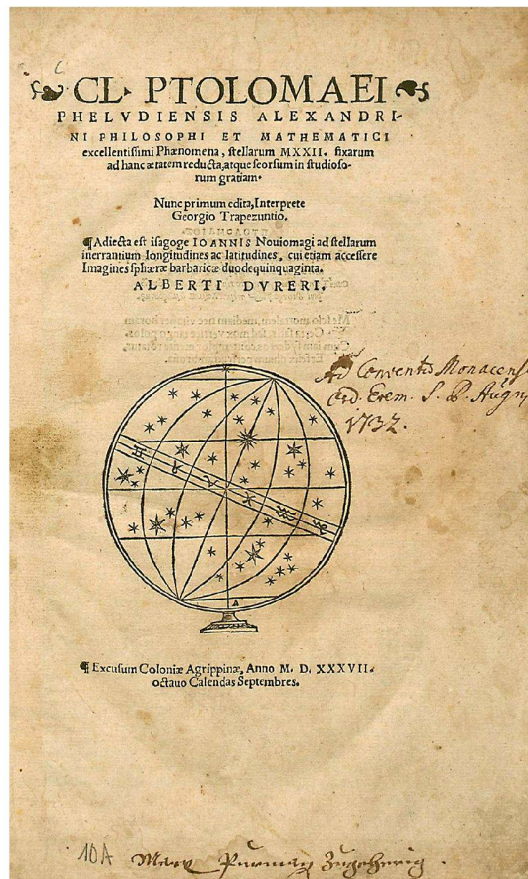 CL. PTOLOMAEI
PHELVDIENSIS ALEXANDRI-
NI PHILOSOPHI ET MATHEMATICI
excellentissimi Phænomena, stellarum MXXII. fixarum
ad hanc ætatem reducta, atque seorsum in studioso-
rum gratiam.
Nunc primum edita, Interprete
Georgio Trapezuntio.
¶Adiecta est isagoge IOANNIS Nouiomagi ad stellarum
inerrantium longitudines ac latitudines, cui etiam accessere
Imagines sphæræ barbaricæ duodequinquaginta.
ALBERTI DVRERI.
Ad Conventũ Monacens
Ord. Erem. S. P. Aug
1732.
♉ ♈ ♓ ♒ ♑
A
¶Excusum Coloniæ Agrippinæ, Anno M. D. XXXVII.
octauo Calendas Septembres.
10A